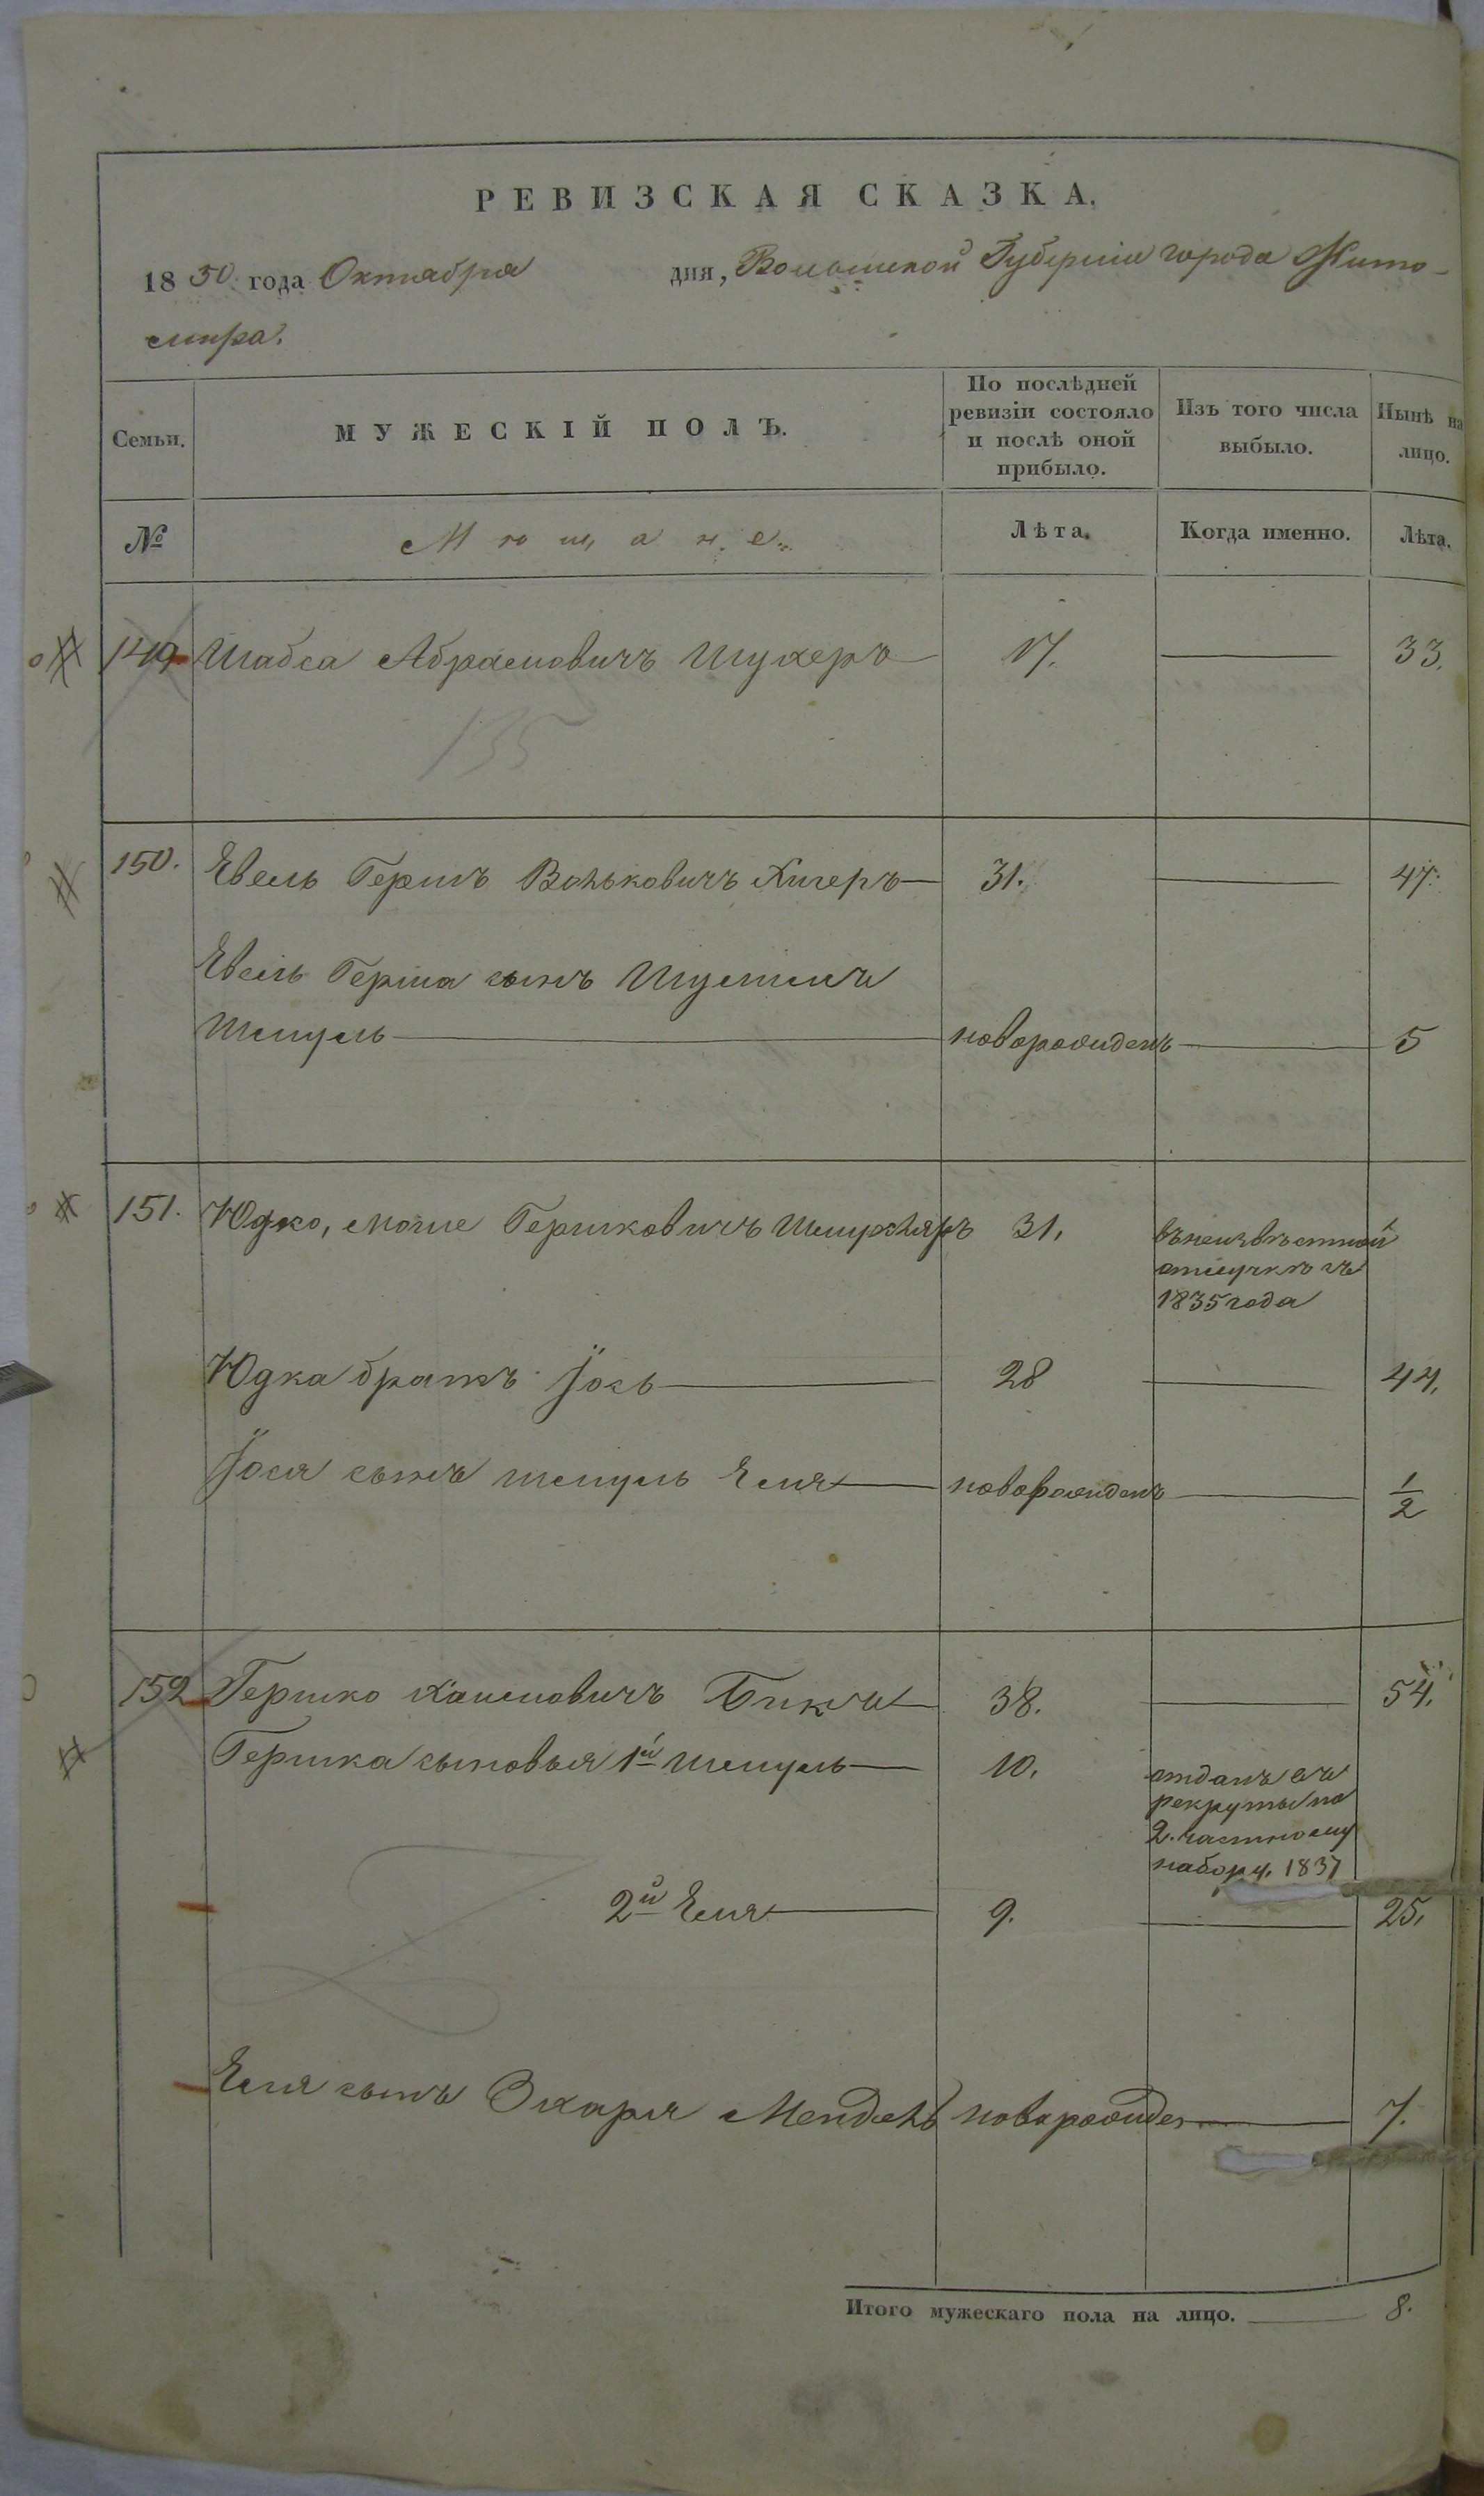 РЕВИЗСКАЯ СКАЗКА.
1850 года Октября дня, Волынской Губерніи города Жито-
мира.
Семьи. МУЖЕСКІЙ ПОЛЪ. По послѣдней ревизіи состояло и послѣ оной прибыло. Изъ того числа выбыло. Нынѣ на лицо.
№ Мѣщане. Лѣта. Когда именно. Лѣта.
149 Шабса Абрамовичъ Шухеръ 17. 33.
135
150. Евель Гершъ Вольковичъ Хигеръ 31. 47.
Евель Герша сынъ
Шмуль новорожденъ 5
151. Юдко, Мошко Гершковичъ 31. въ неизвѣстной
отлучкѣ съ
1835 года
Юдка братъ Іось 28 44.
Іося сынъ Шмуль Еля новорожденъ 1/2
152 Гершко Хаимовичъ 38. 54.
Гершка сыновья 1й Шмуль 10. отданъ въ
рекруты по
2. частному
набору. 1837
2й Еля 9. 25.
Еля сынъ Захаря Мендель новорожден 7.
Итого мужескаго пола на лицо. 8.